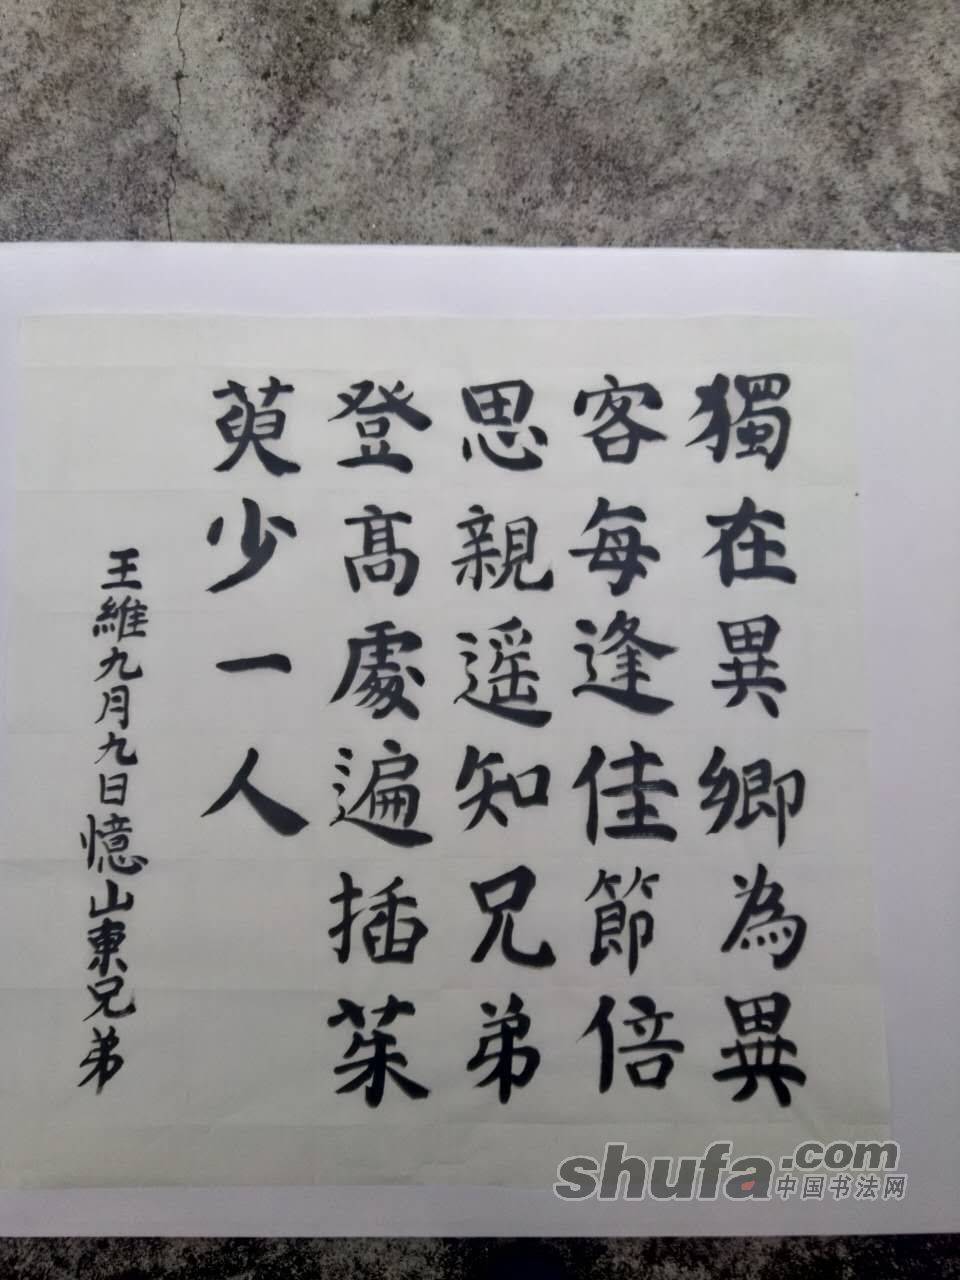 獨在異鄉為異
客每逢佳節倍
思親遥知兄弟
登髙處遍插茱
萸少一人
王維九月九日憶山東兄弟
shufa.com
中国书法网